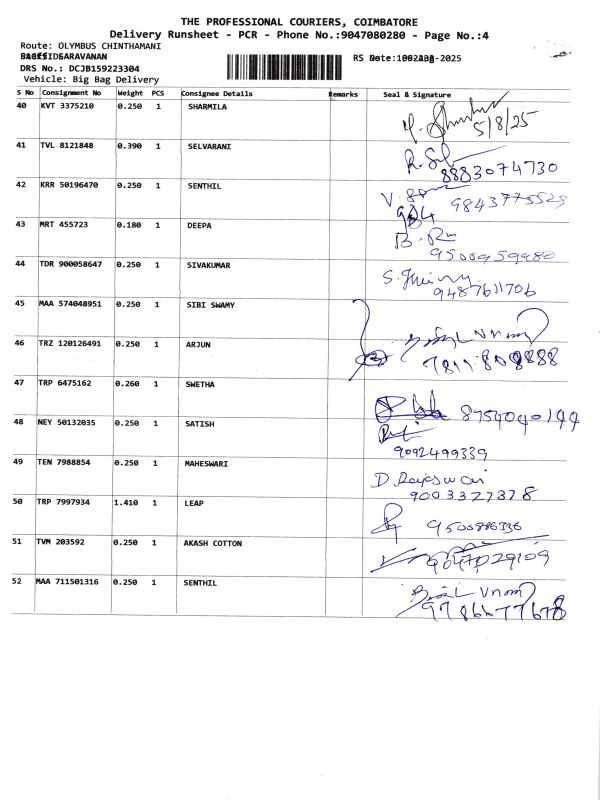 THE PROFESSIONAL COURIERS, COIMBATORE
Delivery Runsheet - PCR - Phone No.:9047080280 - Page No.:4
Route: OLYMBUS CHINTHAMANI
DRS No.: DCJB159223304
Vehicle: Big Bag Delivery
S No Consignment No Weight PCS Consignee Details Remarks Seal & Signature
40 KVT 3375210 0.250 1 SHARMILA
5/8/25
41 TVL 8121848 0.390 1 SELVARANI
8883074730
42 KRR 50196470 0.250 1 SENTHIL
9843775529
43 MRT 455723 0.180 1 DEEPA
9500959980
44 TDR 900058647 0.250 1 SIVAKUMAR
9487611706
45 MAA 574048951 0.250 1 SIBI SWAMY
46 TRZ 120126491 0.250 1 ARJUN
7811808888
47 TRP 6475162 0.260 1 SWETHA
48 NEY 50132035 0.250 1 SATISH
9092499339
49 TEN 7988854 0.250 1 MAHESWARI
D. Rajeswari
9003327378
50 TRP 7997934 1.410 1 LEAP
9500886336
51 TVM 203592 0.250 1 AKASH COTTON
9047029109
52 MAA 711501316 0.250 1 SENTHIL
9786677678